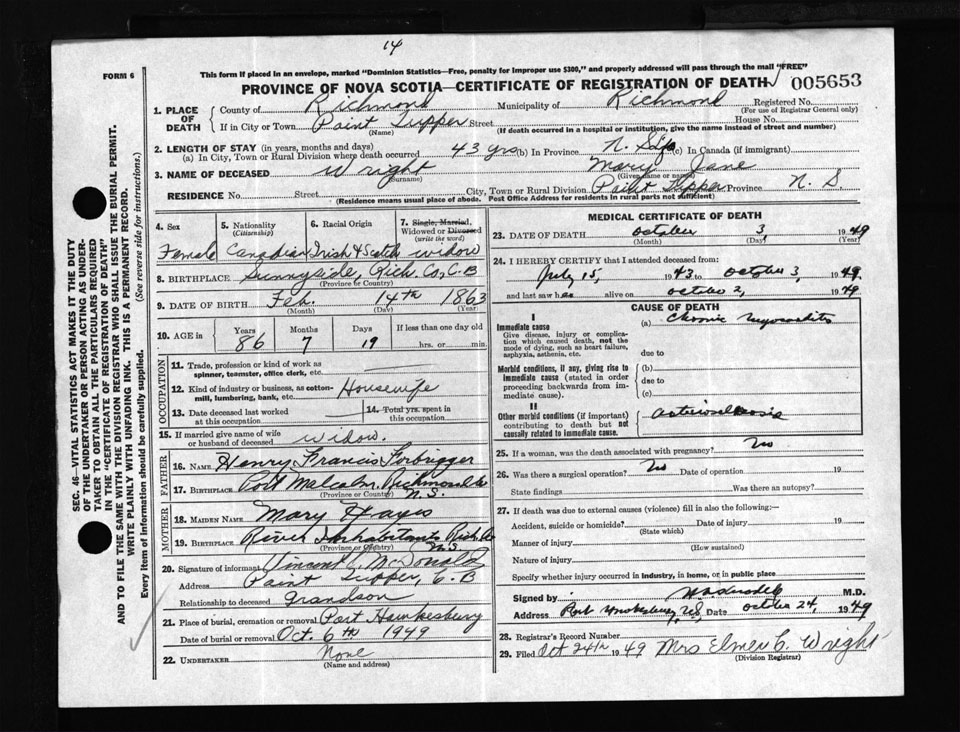 14
FORM 6
This form if placed in an envelope, marked "Dominion Statistics—Free, penalty for improper use $300," and properly addressed will pass through the mail "FREE"
PROVINCE OF NOVA SCOTIA—CERTIFICATE OF REGISTRATION OF DEATH 005653
1. PLACE OF DEATH { County of Richmond Municipality of Richmond Registered No.
(For use of Registrar General only)
If in City or Town Point Tupper Street House No.
(Name) (If death occurred in a hospital or institution, give the name instead of street and number)
2. LENGTH OF STAY (in years, months and days)
(a) In City, Town or Rural Division where death occurred 43 yrs (b) In Province N. S. (c) In Canada (if immigrant)
3. NAME OF DECEASED Wright Mary Jane
(Surname) (Given name or names)
RESIDENCE No. Street City, Town or Rural Division Point Tupper Province N. S.
(Residence means usual place of abode. Post Office Address for residents in rural parts not sufficient)
4. Sex 5. Nationality (Citizenship) 6. Racial Origin 7. Single, Married, Widowed or Divorced (write the word)
Female Canadian Irish & Scotch widow
8. BIRTHPLACE Sunnyside, Rich. Co, C.B
(Province or Country)
9. DATE OF BIRTH Feb. 14th 1863
(Month) (Day) (Year)
10. AGE in Years Months Days If less than one day old
86 7 19 hrs. or min.
OCCUPATION
11. Trade, profession or kind of work as spinner, teamster, office clerk, etc.
12. Kind of industry or business, as cotton-mill, lumbering, bank, etc. Housewife
13. Date deceased last worked at this occupation 14. Total yrs. spent in this occupation
15. If married give name of wife or husband of deceased widow.
FATHER
16. NAME Henry Francis Forbrigger
17. BIRTHPLACE Port Malcolm, Richmond Co N.S.
(Province or Country)
MOTHER
18. MAIDEN NAME Mary Hayes
19. BIRTHPLACE River Inhabitants Rich. Co N.S.
(Province or Country)
20. Signature of informant Vincent L. McDonald
Address Point Tupper, C.B
Relationship to deceased grandson
21. Place of burial, cremation or removal Port Hawkesbury
Date of burial or removal Oct. 6th 1949
22. UNDERTAKER None
(Name and address)
MEDICAL CERTIFICATE OF DEATH
23. DATE OF DEATH October 3 1949
(Month) (Day) (Year)
24. I HEREBY CERTIFY that I attended deceased from:
July 15, 1943 to October 3, 1949
and last saw her alive on October 2, 1949
CAUSE OF DEATH
I
Immediate cause (a) Chronic myocarditis
Give disease, injury or complication which caused death, not the mode of dying, such as heart failure, asphyxia, asthenia, etc.
due to
Morbid conditions, if any, giving rise to immediate cause (stated in order proceeding backwards from immediate cause).
(b)
due to
(c)
II
Other morbid conditions (if important) contributing to death but not causally related to immediate cause.
arteriosclerosis
25. If a woman, was the death associated with pregnancy? No
26. Was there a surgical operation? No Date of operation 19
State findings Was there an autopsy?
27. If death was due to external causes (violence) fill in also the following:—
Accident, suicide or homicide? Date of injury 19
(State which)
Manner of injury
(How sustained)
Nature of injury
Specify whether injury occurred in industry, in home, or in public place
Signed by M.D.
Address Port Hawkesbury, N.S. Date October 24, 1949
28. Registrar's Record Number
29. Filed Oct 24th 1949 Mrs Elmer C. Wright
(Division Registrar)
SEC. 46—VITAL STATISTICS ACT MAKES IT THE DUTY
OF THE UNDERTAKER OR PERSON ACTING AS UNDER-
TAKER TO OBTAIN ALL THE PARTICULARS REQUIRED
IN THE "CERTIFICATE OF REGISTRATION OF DEATH"
AND TO FILE THE SAME WITH THE DIVISION REGISTRAR WHO SHALL ISSUE THE BURIAL PERMIT.
WRITE PLAINLY WITH UNFADING INK. THIS IS A PERMANENT RECORD.
Every item of information should be carefully supplied. (See reverse side for instructions.)